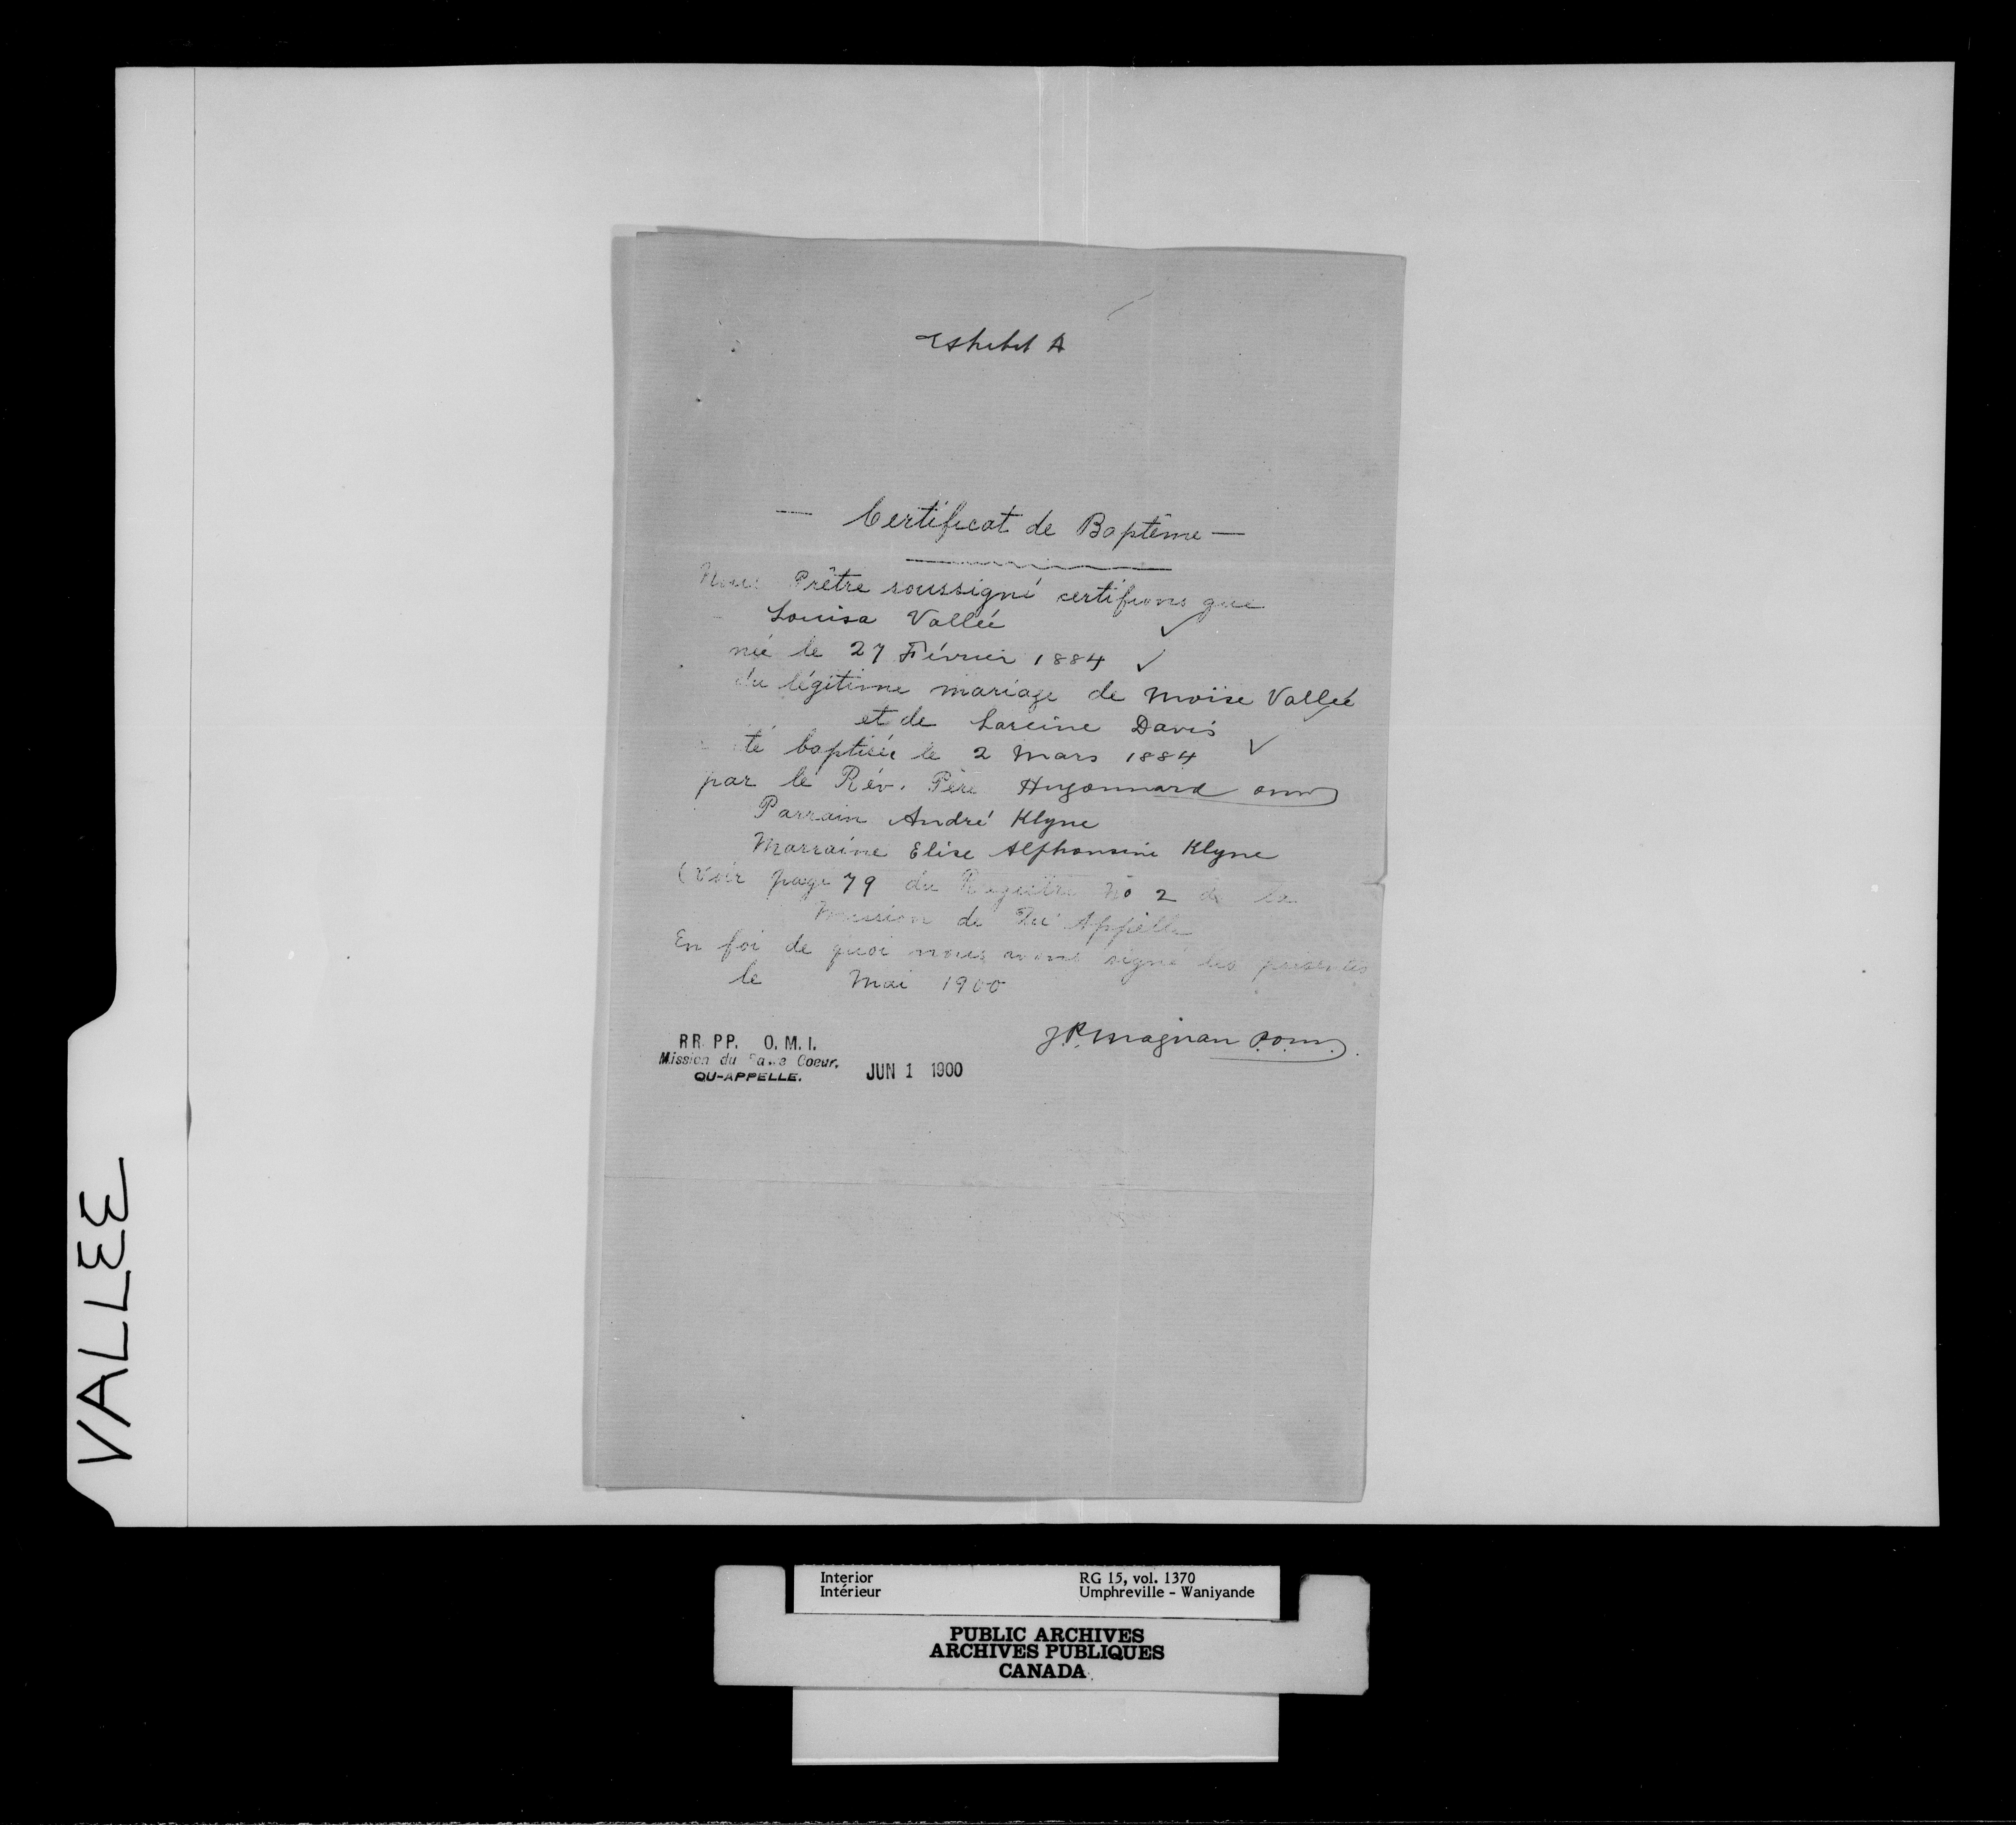 Exhibit A
— Certificat de Baptême —
Nous Prêtre soussigné certifions que
Louisa Vallée
née le 27 Février 1884
du légitime mariage de Moïse Vallée
et de Lareine Davis
été baptisée le 2 Mars 1884
par le Rév. Père Hugonnard omi
Parrain André Klyne
Marraine Elise Alphonsine Klyne
(Voir page 79 du Registre No 2 de la
Mission de Qu'Appelle
En foi de quoi nous avons signé les présentes
le Mai 1900
J.P. Magnan o.m.i.
RR. PP. O. M. I.
Mission du Sacré Coeur.
QU-APPELLE.
JUN 1 1900
VALLEE
Interior
Intérieur
RG 15, vol. 1370
Umphreville - Waniyande
PUBLIC ARCHIVES
ARCHIVES PUBLIQUES
CANADA